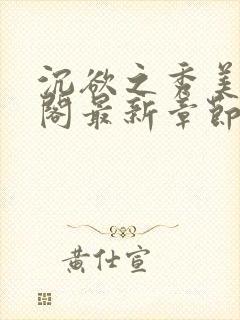 沉欲之秀美
阁最新章节
黄仕宣